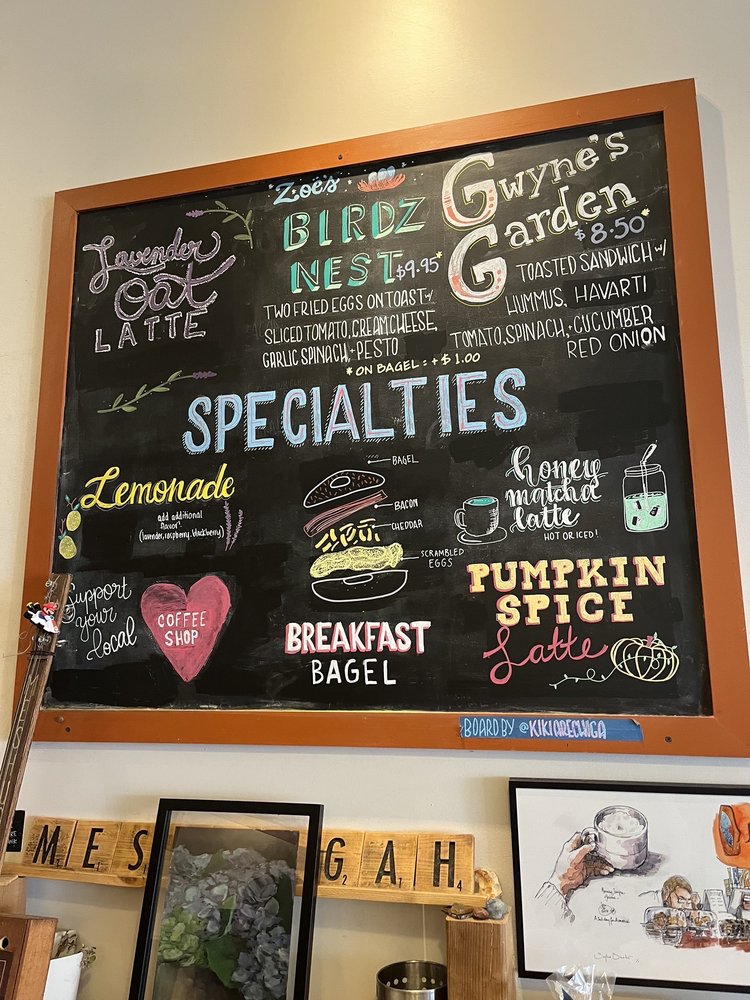 Lavender
Oat
LATTE
Zoë's
BIRDZ
NEST $9.95*
TWO FRIED EGGS ON TOAST w/
SLICED TOMATO, CREAM CHEESE,
GARLIC SPINACH, + PESTO
* ON BAGEL: + $1.00
Gwyne's
Garden
$8.50*
TOASTED SANDWICH w/
HUMMUS, HAVARTI
TOMATO, SPINACH, + CUCUMBER
RED ONION
SPECIALTIES
Lemonade
add additional
flavor
(lavender, raspberry, blackberry)
Support
your
local
COFFEE
SHOP
BAGEL
BACON
CHEDDAR
SCRAMBLED
EGGS
BREAKFAST
BAGEL
honey
matcha
latte
HOT OR ICED!
PUMPKIN
SPICE
Latte
BOARD BY @KIKIARECHIGA
MES
GAH